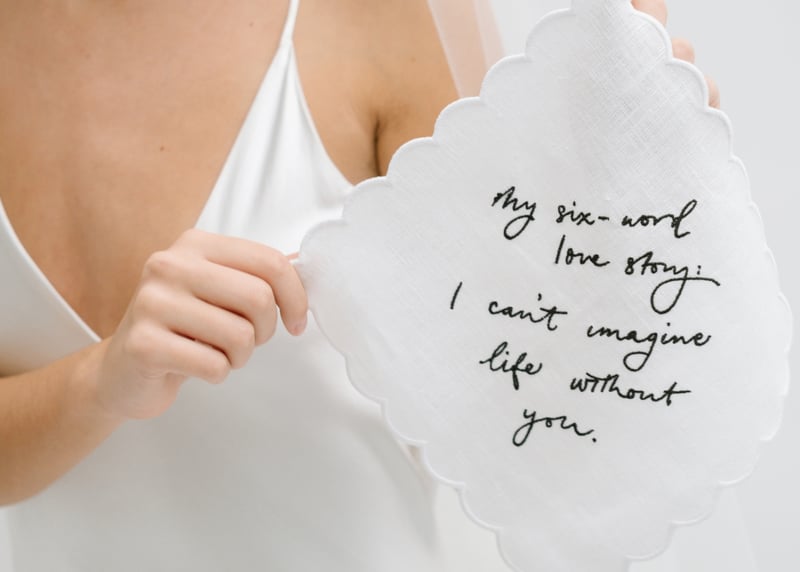 My six-word
love story:
I can't imagine
life without
you.